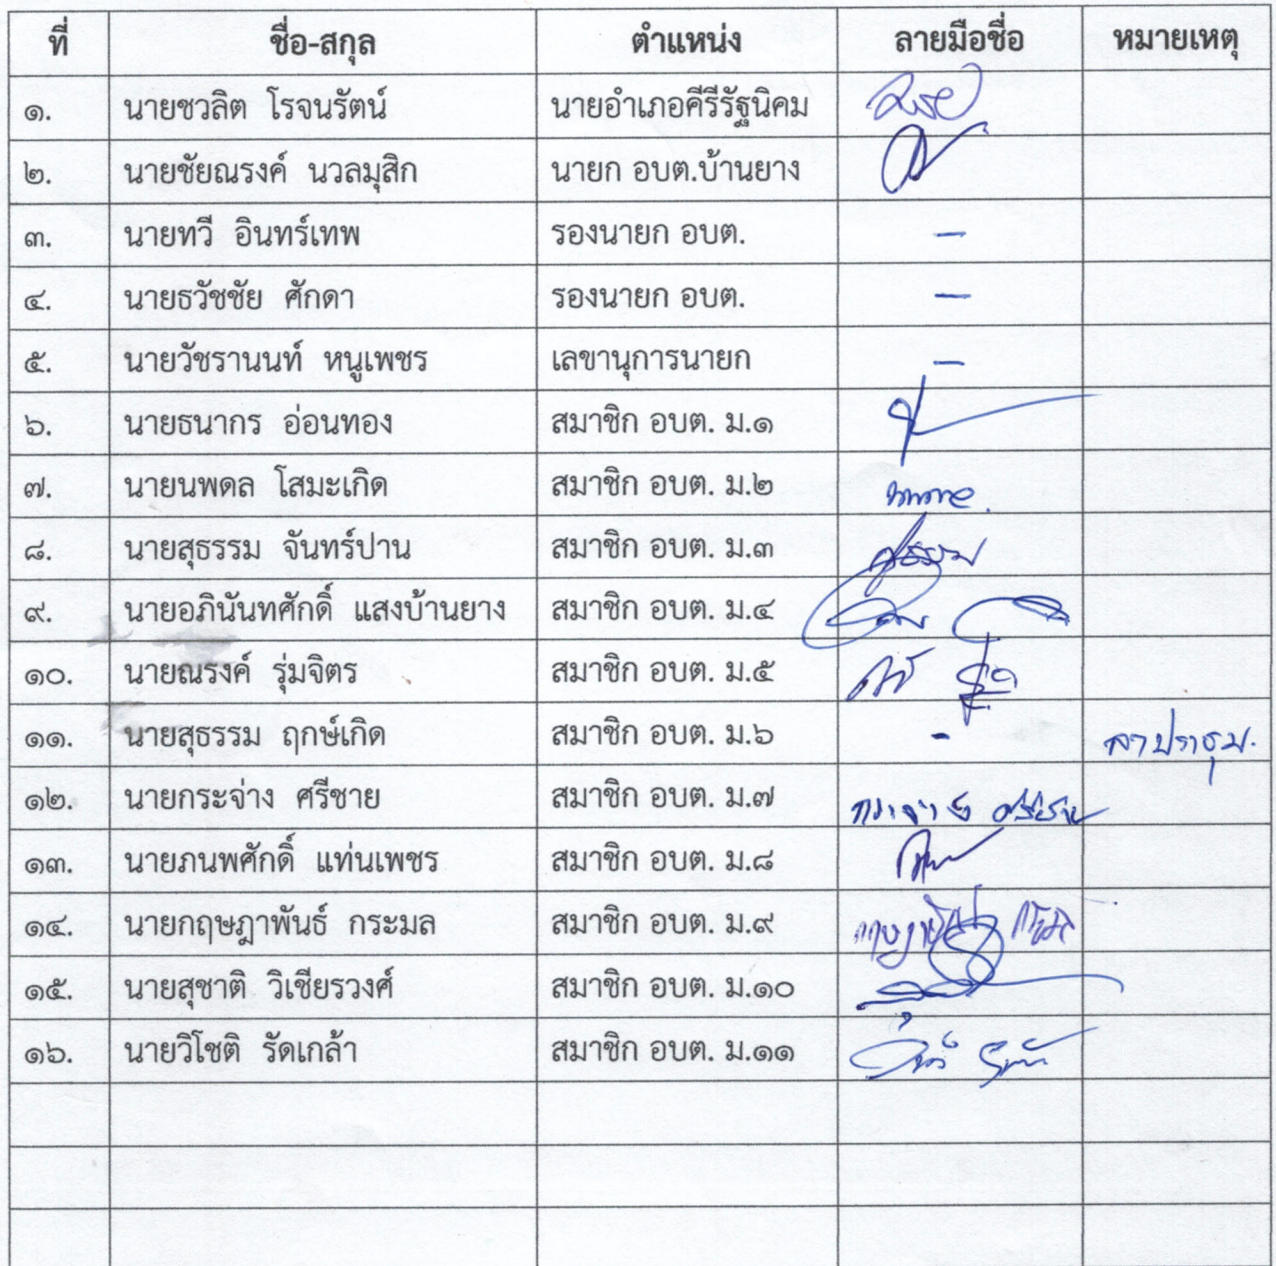 ที่ ชื่อ-สกุล ตำแหน่ง ลายมือชื่อ หมายเหตุ
๑. นายชวลิต โรจนรัตน์ นายอำเภอคีรีรัฐนิคม
๒. นายชัยณรงค์ นวลมุสิก นายก อบต.บ้านยาง
๓. นายทวี อินทร์เทพ รองนายก อบต. –
๔. นายธวัชชัย ศักดา รองนายก อบต. –
๕. นายวัชรานนท์ หนูเพชร เลขานุการนายก –
๖. นายธนากร อ่อนทอง สมาชิก อบต. ม.๑
๗. นายนพดล โสมะเกิด สมาชิก อบต. ม.๒
๘. นายสุธรรม จันทร์ปาน สมาชิก อบต. ม.๓ สุธรรม
๙. นายอภินันทศักดิ์ แสงบ้านยาง สมาชิก อบต. ม.๔
๑๐. นายณรงค์ รุ่มจิตร สมาชิก อบต. ม.๕
๑๑. นายสุธรรม ฤกษ์เกิด สมาชิก อบต. ม.๖ - ลาประชุม.
๑๒. นายกระจ่าง ศรีชาย สมาชิก อบต. ม.๗ กระจ่าง ศรีชาย
๑๓. นายภนพศักดิ์ แท่นเพชร สมาชิก อบต. ม.๘
๑๔. นายกฤษฎาพันธ์ กระมล สมาชิก อบต. ม.๙ กฤษฎาพันธ์ กระมล
๑๕. นายสุชาติ วิเชียรวงศ์ สมาชิก อบต. ม.๑๐
๑๖. นายวิโชติ รัดเกล้า สมาชิก อบต. ม.๑๑